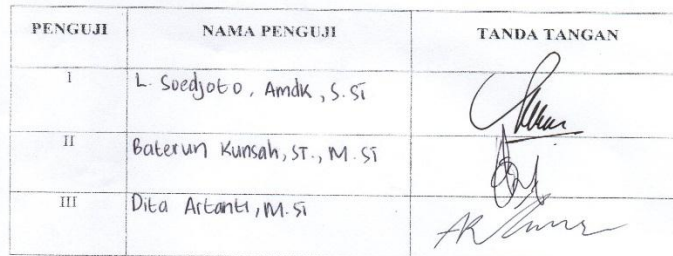 PENGUJI NAMA PENGUJI TANDA TANGAN
I L. Soedjoto, Amdk, S.Si
II Baterun Kunsah, ST., M.Si
III Dita Artanti, M.Si